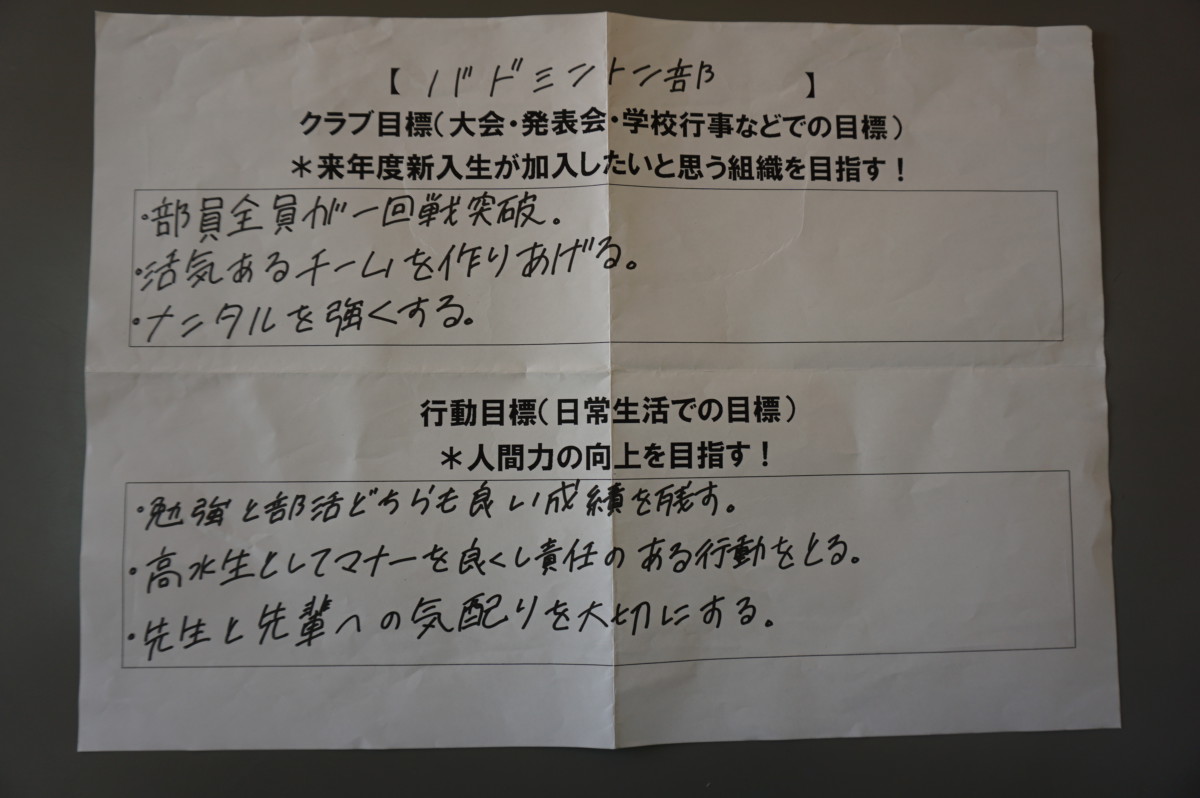 【 バドミントン部 】
クラブ目標(大会・発表会・学校行事などでの目標)
＊来年度新入生が加入したいと思う組織を目指す!
・部員全員が一回戦突破。
・活気あるチームを作りあげる。
・メンタルを強くする。
行動目標(日常生活での目標)
＊人間力の向上を目指す!
・勉強と部活どちらも良い成績を残す。
・高水生としてマナーを良くし責任のある行動をとる。
・先生と先輩への気配りを大切にする。